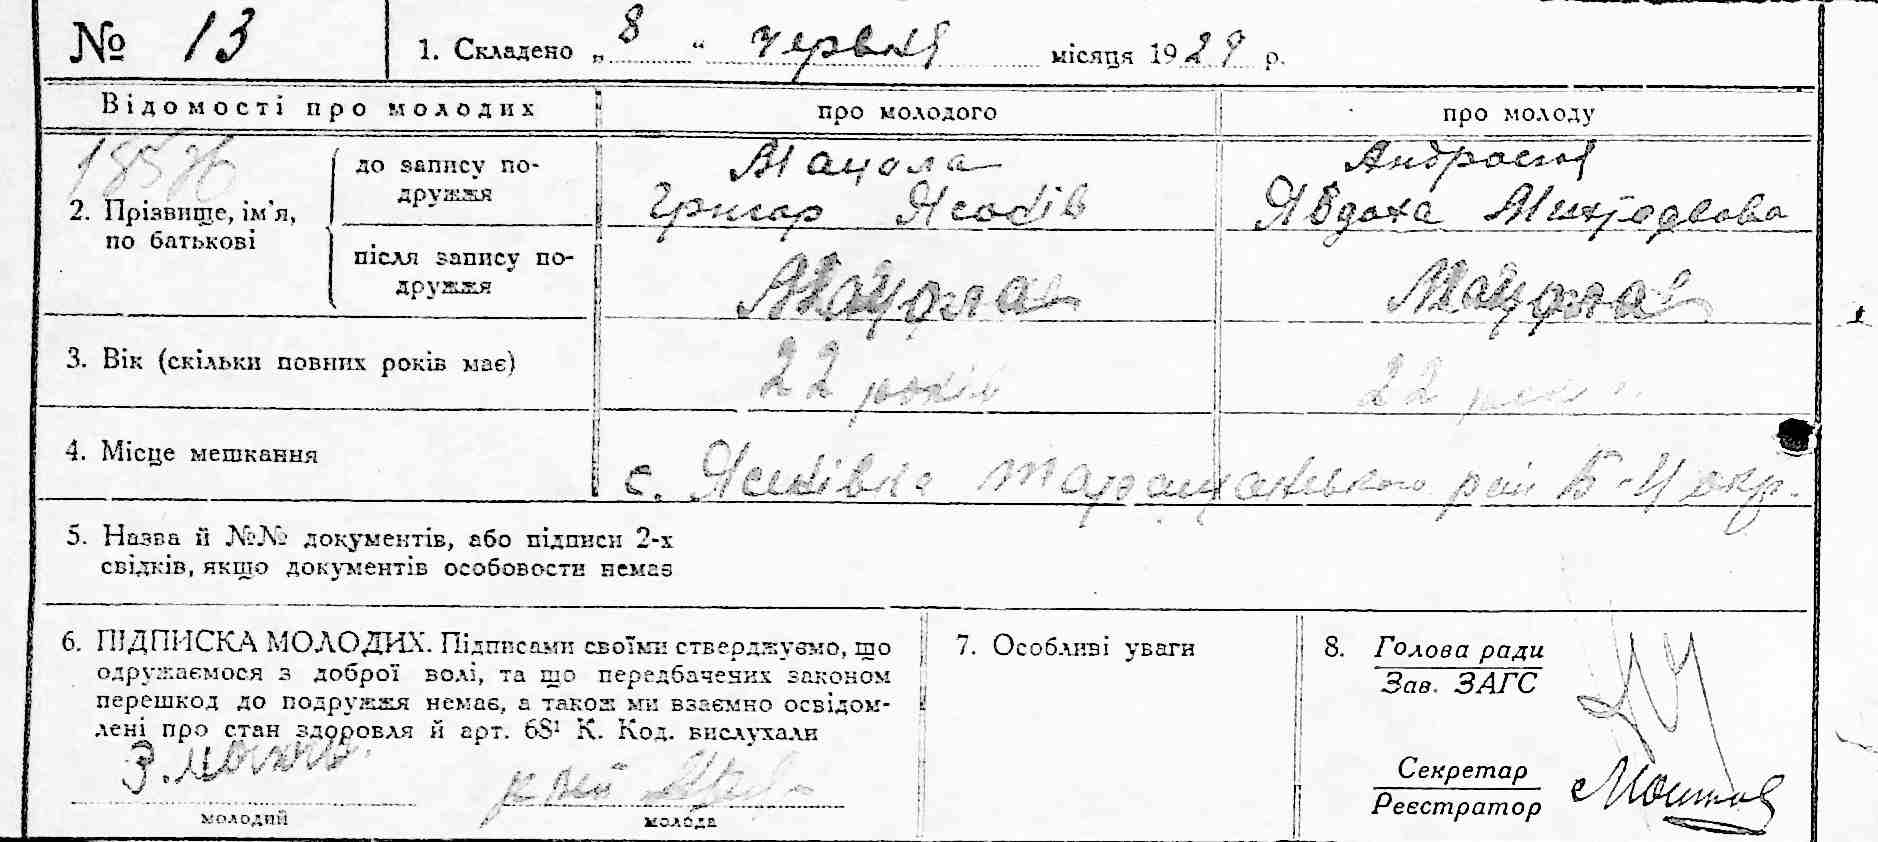 № 13
1. Складено „8“ червня місяця 1929 р.
Відомості про молодих
про молодого
про молоду
2. Прізвище, ім'я, по батькові
до запису по-
дружжя
Мацола
Григор Яковів
Андросюк
Явдоха Митрофвова
після запису по-
дружжя
Мацола
Мацола
3. Вік (скільки повних років має)
22 років
22 рок
4. Місце мешкання
с. Яснівка Таращанського рай Б-Ц окр.
5. Назва й №№ документів, або підписи 2-х
свідків, якщо документів особовости немає
6. ПІДПИСКА МОЛОДИХ. Підписами своїми стверджуємо, що
одружаємося з доброї волі, та що передбачених законом
перешкод до подружжя немає, а також ми взаємно освідом-
лені про стан здоровля й арт. 68¹ К. Код. вислухали
молодий
молода
7. Особливі уваги
8. Голова ради
Зав. ЗАГС
Секретар
Реєстратор